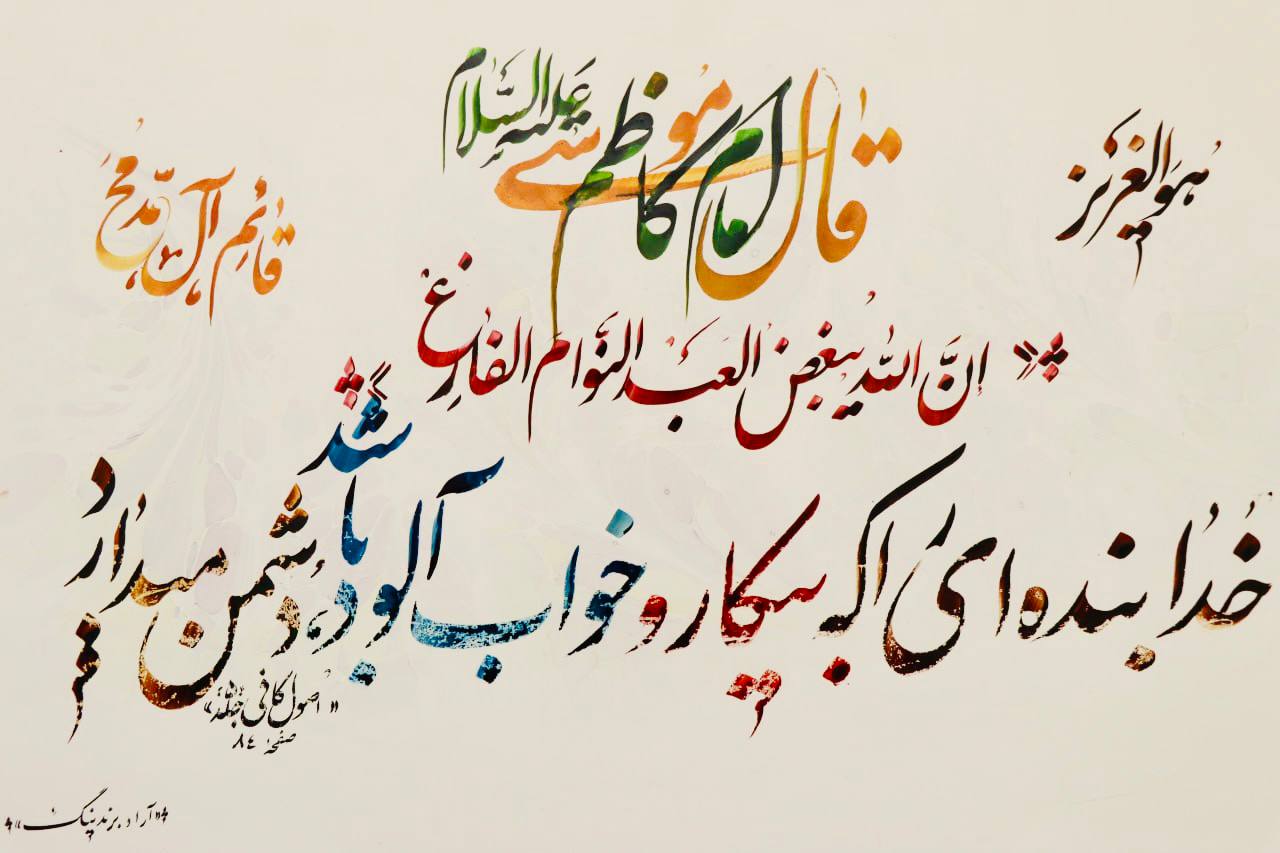 هوالعزیز
قال امام موسی کاظم علیه السلام
قائم آل محمد
«إنَّ اللّٰه یبغض العَبد النَّوام الفارِغ»
خُدا بنده ای را که بیکار و خواب آلود باشد، دشمن میدارد
«اصول کافی
صفحه ٨٤
«آراد برندینگ»